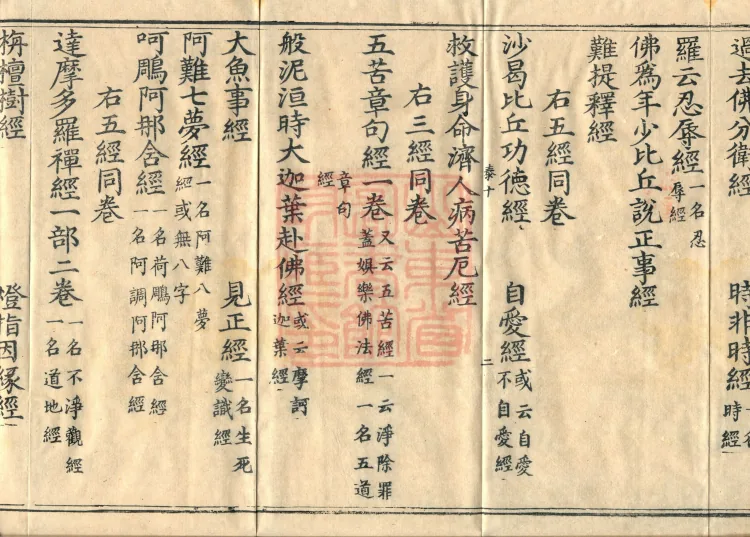 過去佛分衛經 時非時經
羅云忍辱經一名忍辱經
佛為年少比丘說正事經
難提釋經
右五經同卷
沙曷比丘功德經 自愛經或云自愛不自愛經
二
救護身命濟人病苦厄經
右三經同卷
五苦章句經一卷又云五苦經一云淨除罪蓋娛樂佛法經一名五道章句經
般泥洹時大迦葉赴佛經或云摩訶迦葉經
大魚事經 見正經一名生死變識經
阿難七夢經一名阿難八夢經或無八字
呵鵰阿那含經一名荷鵰阿那含經一名阿調阿那含經
右五經同卷
達摩多羅禪經一部二卷一名不淨觀經一名道地經
栴檀樹經 燈指因緣經